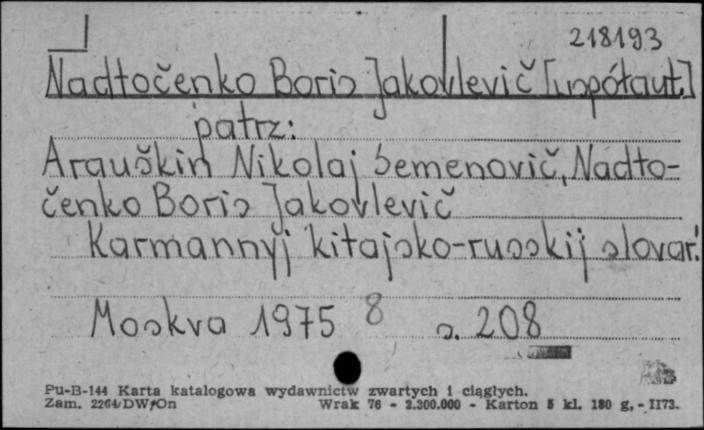 218193
Nadtočenko Boris Jakovlevič [współaut.]
patrz:
Arauškin Nikolaj Semenovič, Nadto-
čenko Boris Jakovlevič
Karmannyj kitajsko-russkij slovar'.
Moskva 1975 8 s. 208
Pu-B-144 Karta katalogowa wydawnictw zwartych i ciągłych.
Zam. 2264/DW/On Wrak 76 - 2.300.000 - Karton 5 kl. 180 g, - II73.